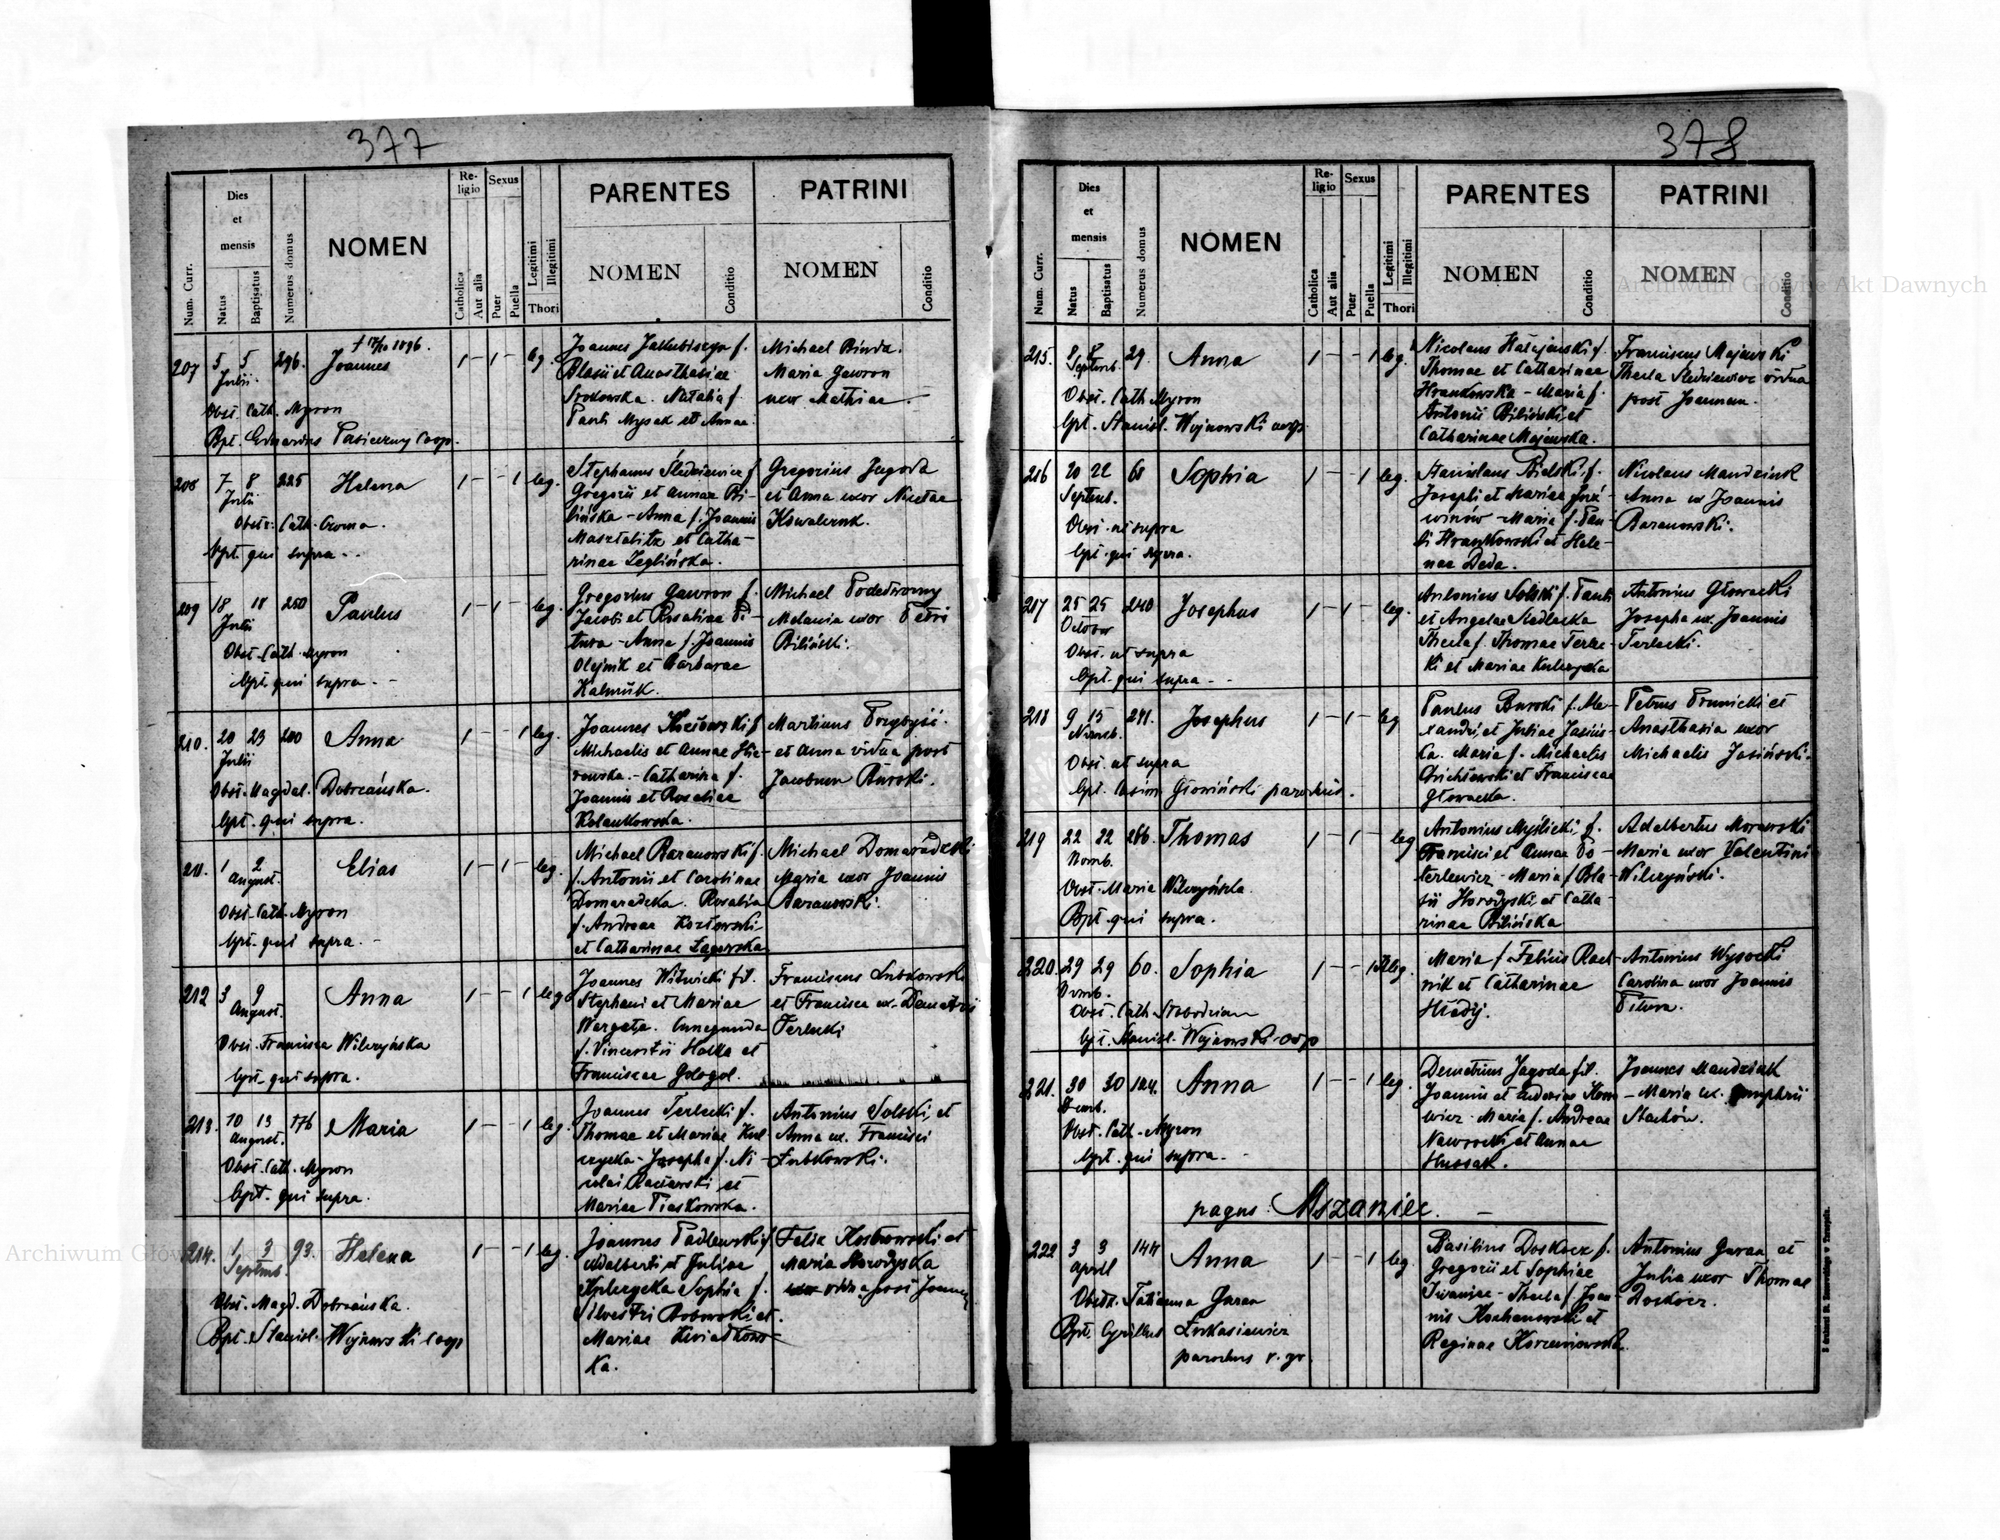 377
Num. Curr.
Dies et mensis
Natus
Baptisatus
Numerus domus
NOMEN
Religio
Catholica
Aut alia
Sexus
Puer
Puella
Legitimi
Illegitimi
Thori
PARENTES
NOMEN
Conditio
PATRINI
NOMEN
Conditio
207 5 5 296. Joannes 1 – 1 – leg.
Julii
Obst. Cath. Myron
Bpt. Eduardus Pasieczny Coop.
Joannes f.
Blasii et Anasthasiae
Srokowska. Natalia f.
Pauli Mysak et Annae
Michael Binda.
Maria Gawron
uxor Mathiae
208 7 8 225 Helena 1 – – 1 leg.
Julii
Obst. Cath.
Bpt. qui supra.
Stephanus Śledziewicz f.
Gregorii et Annae Bi-
lińska – Anna f. Joannis
et Catha-
rinae Żeglińska.
Gregorius Jagoda
et Anna uxor Nicetae
Kowalczuk.
209 18 18 250 Paulus 1 – 1 – leg.
Julii
Obst. Cath. Myron
Bpt. qui supra.
Gregorius Gawron f.
Jacobi et Rosaliae Pi-
tura – Anna f. Joannis
Olejnik et Barbarae
Kalmuk.
Michael
Melania uxor Petri
Biliński.
210. 20 23 200 Anna 1 – – 1 leg.
Julii
Obst. Magdal. Dobrzańska.
Bpt. qui supra.
Joannes f.
Michaelis et Annae
– Catharina f.
Joannis et Rosaliae
Kolankowska.
Martinus
et Anna vidua post
Jacobum Burski.
211. 1 2 Elias 1 – 1 – leg.
August.
Obst. Cath. Myron
Bpt. qui supra. –
Michael Baranowski f.
f. Antonii et Carolinae
Domaradzka. Rosalia
f. Andreae Kozłowski
et Catharinae Zagórska
Michael Domaradzki
Maria uxor Joannis
Baranowski.
212 3 9 Anna 1 – – 1 leg.
August.
Obst. Francisca Wilczyńska
Bpt. qui supra.
Joannes Witwicki fil.
Stephani et Mariae
Cunegunda
f. Vincentii Halka et
Franciscae
Franciscus Lubkowski
et Francisca ux. Demetrii
Terlecki
213. 10 13 176 Maria 1 – – 1 leg.
August.
Obst. Cath. Myron
Bpt. qui supra.
Joannes Terlecki f.
Thomae et Mariae Kul-
czycka – Josepha f. Ni-
colai et
Mariae Piaskowska.
Antonius Solski et
Anna ux. Francisci
Lubkowski.
214. 1 3 93. Helena 1 – – 1 leg.
Septmb.
Obst. Magd. Dobrzańska.
Bpt. Stanisl. Wojnowski Coop
Joannes Padlewski f.
Adalberti et Juliae
Kulczycka Sophia f.
Silvestri Bobowski et
Mariae Kwiatkows-
ka.
Felix et
Maria Horodyska
vidua post Joannem
378
Num. Curr.
Dies et mensis
Natus
Baptisatus
Numerus domus
NOMEN
Religio
Catholica
Aut alia
Sexus
Puer
Puella
Legitimi
Illegitimi
Thori
PARENTES
NOMEN
Conditio
PATRINI
NOMEN
Conditio
215. 8 8 29. Anna 1 – – 1 leg.
Septmb.
Obst. Cath. Myron
Bpt. Stanisl. Wojnowski coop.
Nicolaus f.
Thomae et Catharinae
Hrankowska – Maria f.
Antonii Biliński et
Catharinae Majewska.
Franciscus Majewski
Thecla Śledziewicz vidua
post Joannem.
216 20 22 68 Sophia 1 – – 1 leg.
Septmb.
Obst. ut supra
Bpt. qui supra.
Stanislaus Bielski f.
Josephi et Mariae
– Maria f. Pau-
li Hrankowski et Hele-
nae Deda.
Nicolaus Mandziuk
Anna ux Joannis
Baranowski.
217 25 25 240 Josephus 1 – 1 – leg.
October
Obst. ut supra
Bpt. qui supra –
Antonius Solski f. Pauli
et Angelae Siedlecka
Thecla f. Thomae Terlec-
ki et Mariae Kulczycka
Antonius Głowacki
Josepha ux. Joannis
Terlecki.
218 9 15 271. Josephus 1 – 1 – leg
Novmb.
Obst. ut supra
Bpt. Casim. Głowiński parochus.
Paulus Burski f. Ale-
xandri et Juliae Jasińs-
ka. Maria f. Michaelis
et Franciscae
Głowacka.
Petrus Prunicki et
Anasthasia uxor
Michaelis Jasiński.
219 22 22 266. Thomas 1 – 1 – leg
Novmb.
Obst. Maria Wilczyńska.
Bpt. qui supra.
Antonius Myślicki f.
Francisci et Annae Po-
terlewicz – Maria f. Bla-
sii Horodyski et Catha-
rinae Bilińska
Adalbertus Morawski
Maria uxor Valentini
Wilczyński.
220. 29 29 60. Sophia 1 – – 1 illeg.
Novmb.
Obst. Cath. Swobodzian
Bpt. Stanisl. Wojnowski coop
Maria f. Felicis
et Catharinae
Antonius Wysocki
Carolina uxor Joannis
Pitura.
221. 30 30 124. Anna 1 – – 1 leg.
Obst. Cath. Myron
Bpt. qui supra. –
Demetrius Jagoda fil.
Joannis et
Maria f. Andreae
Nawrocki et Annae
Hussak.
Joannes Mandziak
– Maria ux. Onuphrii
Stachów.
pagus Mszaniec. –
222 3 3 144 Anna 1 – – 1 leg.
april
Obstr. Tatianna Guraa
Bpt. Cyrillus Łukasiewicz
parochus r. gr.
Basilius Doskocz f.
Gregorii et Sophiae
Iwaniec – Thecla f. Joan-
nis Kochanowski et
Reginae Korzeniowska.
Antonius Guraa et
Julia uxor Thomae
Doskocz.
Archiwum Główne Akt Dawnych
Archiwum Główne Akt Dawnych